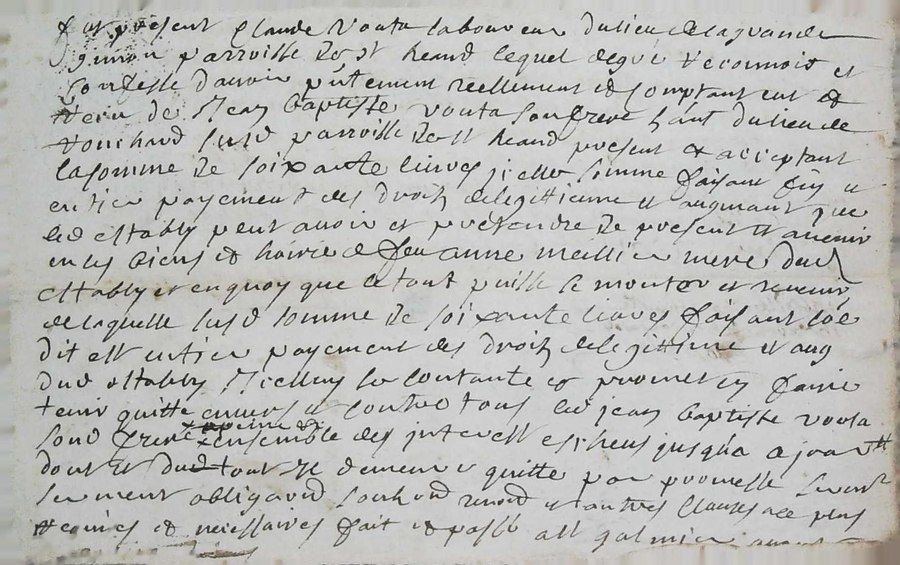 fut present Claude Vouta laboureur du lieu de la grande
parroisse de st heand lequel de gré reconnois et
confesse d'avoir pntement reellement et comptant eu et
receu de Jean baptiste vouta son frere hant du lieu de
touchard susd parroisse de st heand present et acceptant
la somme de soixante livres jcelle somme faisant fin et
entier payement des droits de legittieme et augmant que
led establÿ peut avoir et pretendre de present et avenir
en les biens et hoirie de feu anne meillier mere dud
establÿ et en quoy que le tout puisse se monter et revenir
de laquelle susd somme de soixante livres faisant
dit est entier payement des droits de legittime et aug
dud establÿ se contante et promet en faire
tenir quitte envers et contre tous led jean baptiste vouta
sond frere ensemble des jnterest escheus jusqua a jour
dont et du tout Il demeure quitte par promesse
serment obligaon soubon renon et autres clauses a ce plus
requises et necessaires fait et passé a st galmier